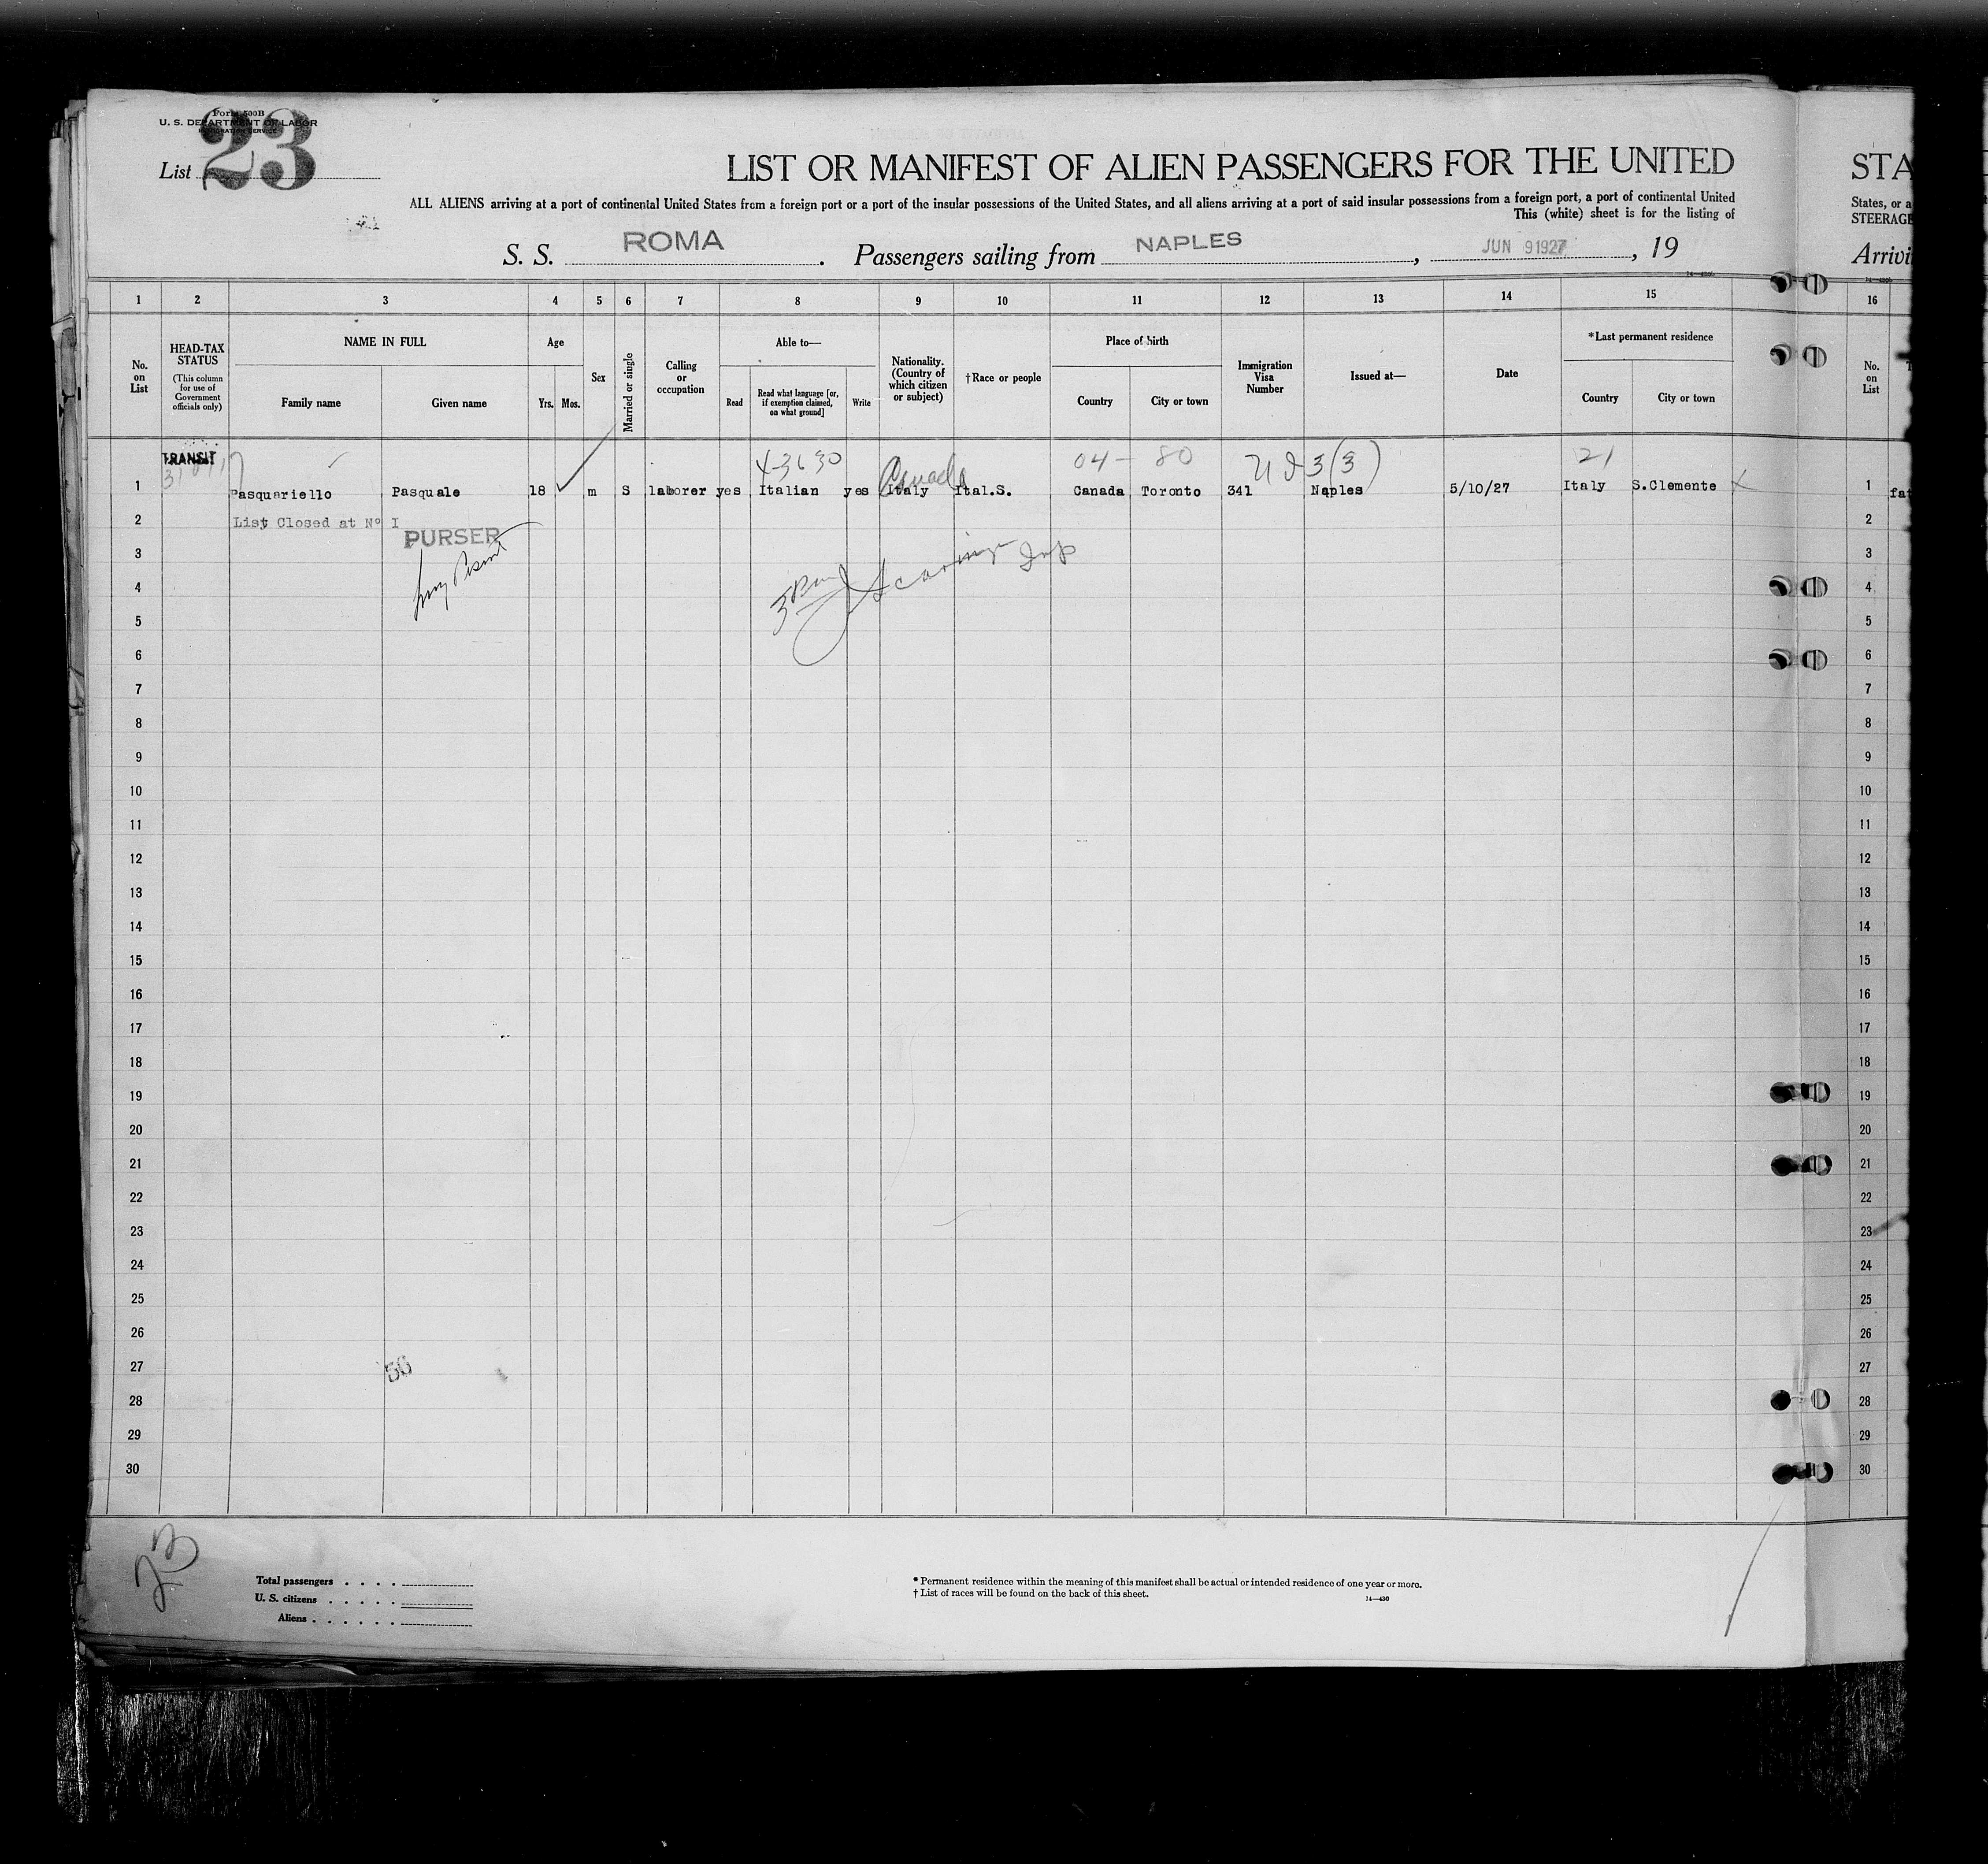 Form 500B
U. S. DEPARTMENT OF LABOR
IMMIGRATION SERVICE
List 23
LIST OR MANIFEST OF ALIEN PASSENGERS FOR THE UNITED
STA
ALL ALIENS arriving at a port of continental United States from a foreign port or a port of the insular possessions of the United States, and all aliens arriving at a port of said insular possessions from a foreign port, a port of continental United
States, or a
This (white) sheet is for the listing of
STEERAGE
S. S. ROMA. Passengers sailing from NAPLES, JUN 9 1927, 19
Arrivi
14—430
1 2 3 4 5 6 7 8 9 10 11 12 13 14 15 16
No. on List
HEAD-TAX STATUS
(This column for use of Government officials only)
NAME IN FULL
Family name
Given name
Age
Yrs.
Mos.
Sex
Married or single
Calling or occupation
Able to—
Read
Read what language [or, if exemption claimed, on what ground]
Write
Nationality. (Country of which citizen or subject)
†Race or people
Place of birth
Country
City or town
Immigration Visa Number
Issued at—
Date
*Last permanent residence
Country
City or town
No. on List
TRANSIT
4-3630
Canada
04- 80
3(3)
21
1 Pasquariello Pasquale 18 m S laborer yes Italian yes Italy Ital.S. Canada Toronto 341 Naples 5/10/27 Italy S.Clemente 1 fat
2 List Closed at Nº I 2
PURSER
3 3
4 4
5 5
6 6
7 7
8 8
9 9
10 10
11 11
12 12
13 13
14 14
15 15
16 16
17 17
18 18
19 19
20 20
21 21
22 22
23 23
24 24
25 25
26 26
27 27
56
28 28
29 29
30 30
23
Total passengers . . . .
U. S. citizens . . . . .
Aliens . . . . . .
* Permanent residence within the meaning of this manifest shall be actual or intended residence of one year or more.
† List of races will be found on the back of this sheet.
14—430